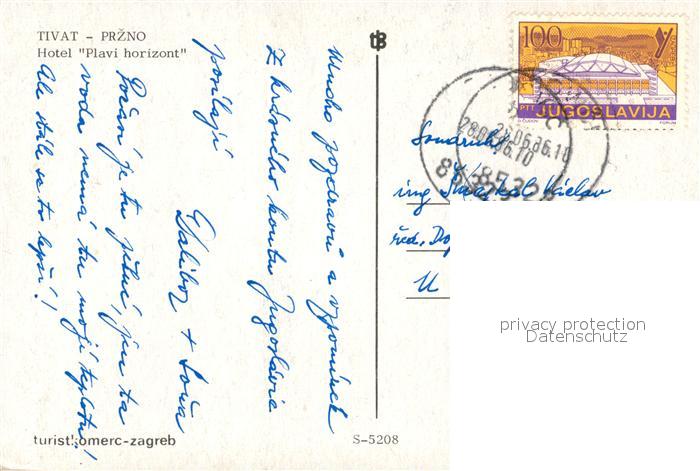 TIVAT – PRŽNO
Hotel "Plavi horizont"
Mnoho pozdravů a vzpomínek
z krásného koutu Jugoslávie
posílají
Dalibor + Soňa
Počasí je tu pěkné, jen ta
voda nemá tu moji teplotu!
Ale stále se to lepší!
turist komerc-zagreb
S-5208
100
PTT JUGOSLAVIJA
28.06.86.10
85320
Soudruh
ing Václav
řed.
U
privacy protection
Datenschutz